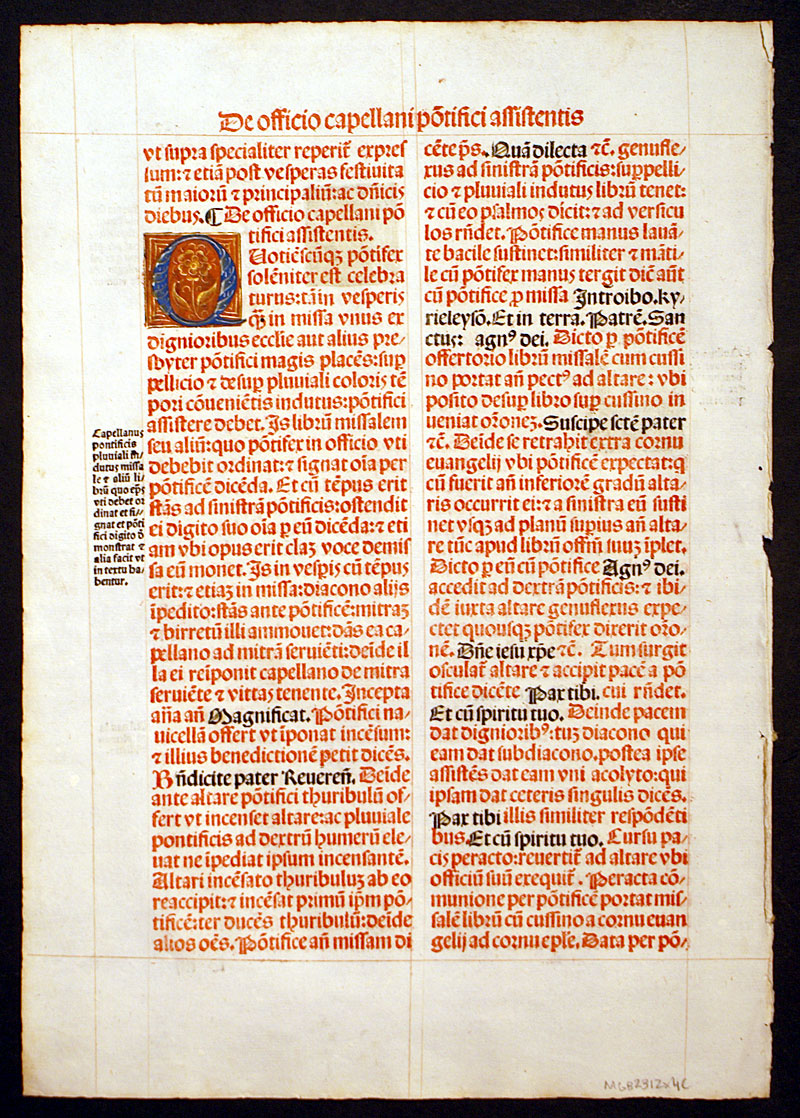 De officio capellani põtifici assistentis
vt supra specialiter reperit̃ expres
sum: ⁊ etiã post vesperas festiuita
tũ maiorũ ⁊ principaliũ: ac dñicis
diebus. ¶ De officio capellani põ
tifici assistentis.
QUotiẽscũqꝫ põtifex
solẽniter est celebra
turus: tã in vesperis
qꝫ̃ in missa vnus ex
dignioribus ecclie aut alius pre⸗
sbyter põtifici magis placẽs: suꝑ
pellicio ⁊ desuꝑ pluuiali coloris tẽ
pori cõueniẽtis indutus: põtifici
assistere debet. Is librũ missalem
seu aliũ: quo põtifex in officio vti
debebit ordinat: ⁊ signat oĩa per
põtificẽ dicẽda. Et cũ tẽpus erit
stãs ad sinistrã põtificis: ostendit
ei digito suo oĩa ꝑ eũ dicẽda: ⁊ eti
am vbi opus erit claꝫ voce demis
sa eũ monet. Is in vesꝑis cũ tẽpus
erit: ⁊ etiaꝫ in missa: diacono alijs
ĩpedito: stãs ante põtificẽ: mitraꝫ
⁊ birretũ illi ammouet: dãs ea ca⸗
pellano ad mitrã seruiẽti: deĩde il
la ei reĩponit capellano de mitra
seruiẽte ⁊ vittas tenente. Incepta
aña añ Magnificat. Põtifici na⸗
uicellã offert vt ĩponat incẽsum:
⁊ illius benedictionẽ petit dicẽs.
Bñdicite pater Reuereñ. Deĩde
ante altare põtifici thuribulũ of⸗
fert vt incenset altare: ac pluuiale
pontificis ad dextrũ humerũ ele⸗
uat ne ĩpediat ipsum incensantẽ.
Altari incẽsato thuribuluꝫ ab eo
reaccipit: ⁊ incẽsat primũ ip̃m põ⸗
tificẽ: ter ducẽs thuribulũ: deĩde
alios oẽs. Põtifice añ missam di
Capellanus
pontificis
pluuiali ĩn⸗
dutus missa
le ⁊ aliũ li⸗
brũ quo ep̃s
vti debet or
dinat et si⸗
gnat et põti
fici digito d̃
monstrat ⁊
alia facit vt
in textu ha⸗
bentur.
cẽte p̃s. Quã dilecta ⁊c̃. genufle⸗
xus ad sinistrã põtificis: suꝑpelli⸗
cio ⁊ pluuiali indutus librũ tenet:
⁊ cũ eo psalmos dicit: ⁊ ad versicu
los rñdet. Põtifice manus lauã⸗
te bacile sustinet: similiter ⁊ mãti⸗
le cũ põtifex manus tergit diẽ aũt
cũ põtifice ꝓ missa Introibo. Ky⸗
rieleysõ. Et in terra. Patrẽ. San
ctus: agnꝰ dei. Dicto ꝑ põtificẽ
offertorio librũ missalẽ cum cussi
no portat añ pectꝰ ad altare: vbi
posito desuꝑ libro suꝑ cussino in
ueniat or̃oneꝫ. Suscipe sctẽ pater
⁊c̃. Deĩde se retrahit extra cornu
euangelij vbi põtificẽ expectat: q̃
cũ fuerit añ inferiorẽ gradũ alta⸗
ris occurrit ei: ⁊ a sinistra eũ susti
net vsqꝫ ad planũ suꝑius añ alta⸗
re tũc apud librũ offm̃ suuꝫ ĩplet.
Dicto ꝑ eũ cũ põtifice Agnꝰ dei.
accedit ad dextrã põtificis: ⁊ ibi⸗
dẽ iuxta altare genuflexus expe⸗
ctet quousqꝫ põtifex dixerit or̃o⸗
nẽ. Dñe iesu xp̃e ⁊c̃. Tum surgit
osculat̃ altare ⁊ accipit pacẽ a põ
tifice dicẽte Pax tibi. cui rñdet.
Et cũ spiritu tuo. Deinde pacem
dat dignioribꝰ: tuꝫ diacono qui
eam dat subdiacono. postea ipse
assistẽs dat eam vni acolyto: qui
ipsam dat ceteris singulis dicẽs.
Pax tibi illis similiter respõdẽti
bus. Et cũ spiritu tuo. Cursu pa⸗
cis peracto: reuertit̃ ad altare vbi
officiũ suũ exequit̃. Peracta cõ⸗
munione per põtificẽ portat mis⸗
salẽ librũ cũ cussino a cornu euan
gelij ad cornu ep̃le. Data per põ⸗
MGB2312x4C